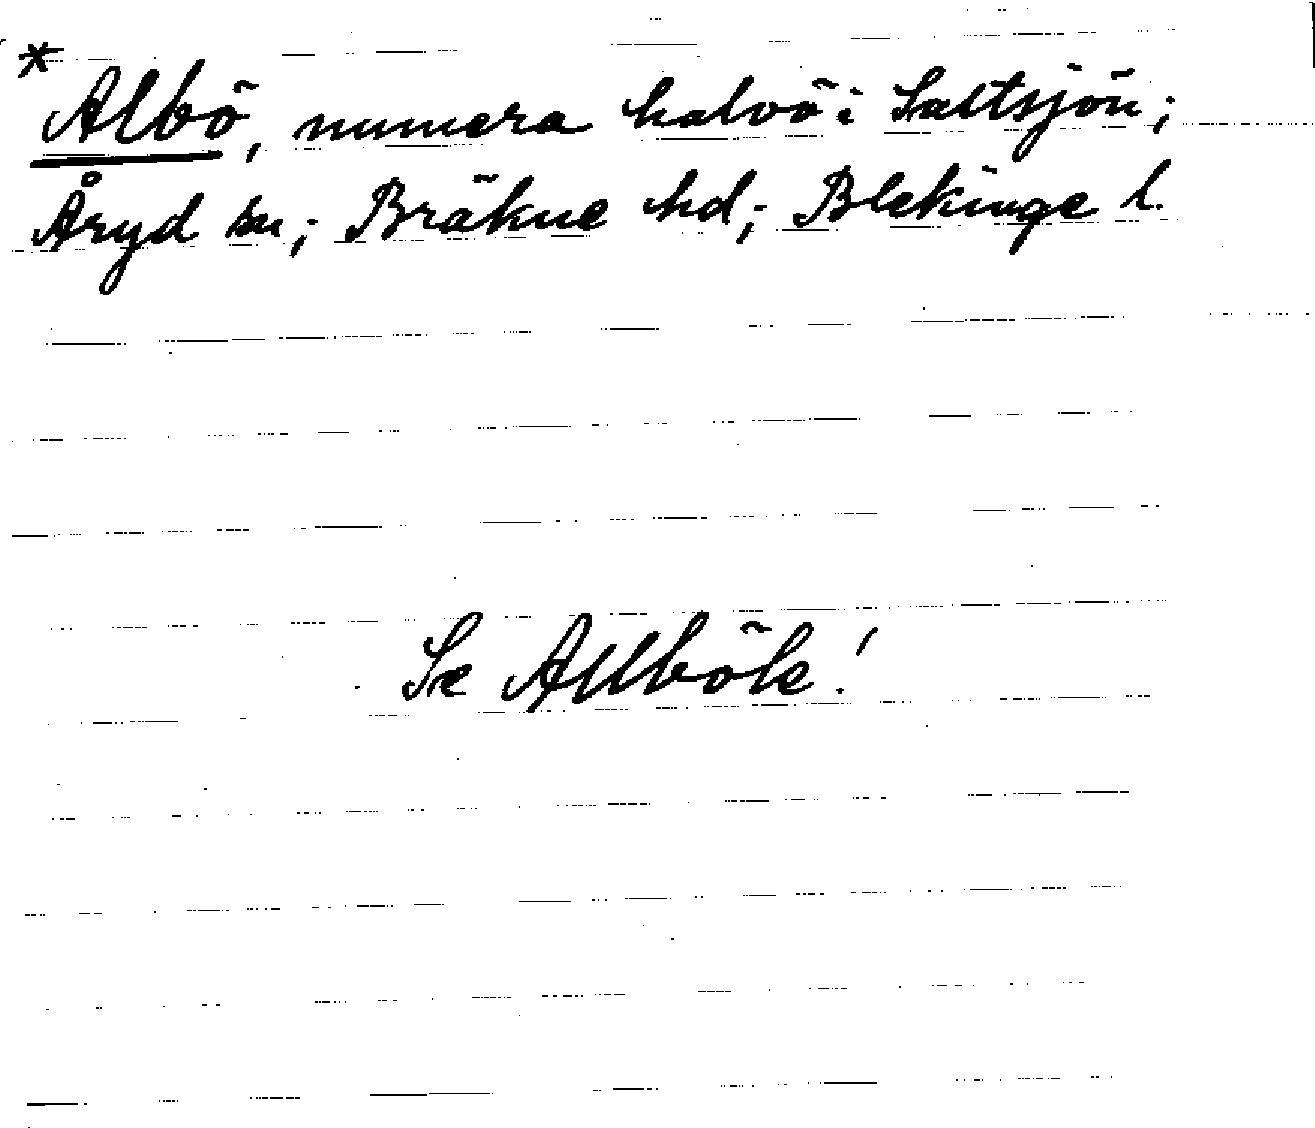 *Albö, numera halvö i Saltsjön;
Åryd sn; Bräkne hd; Blekinge l.
Se Allböle!